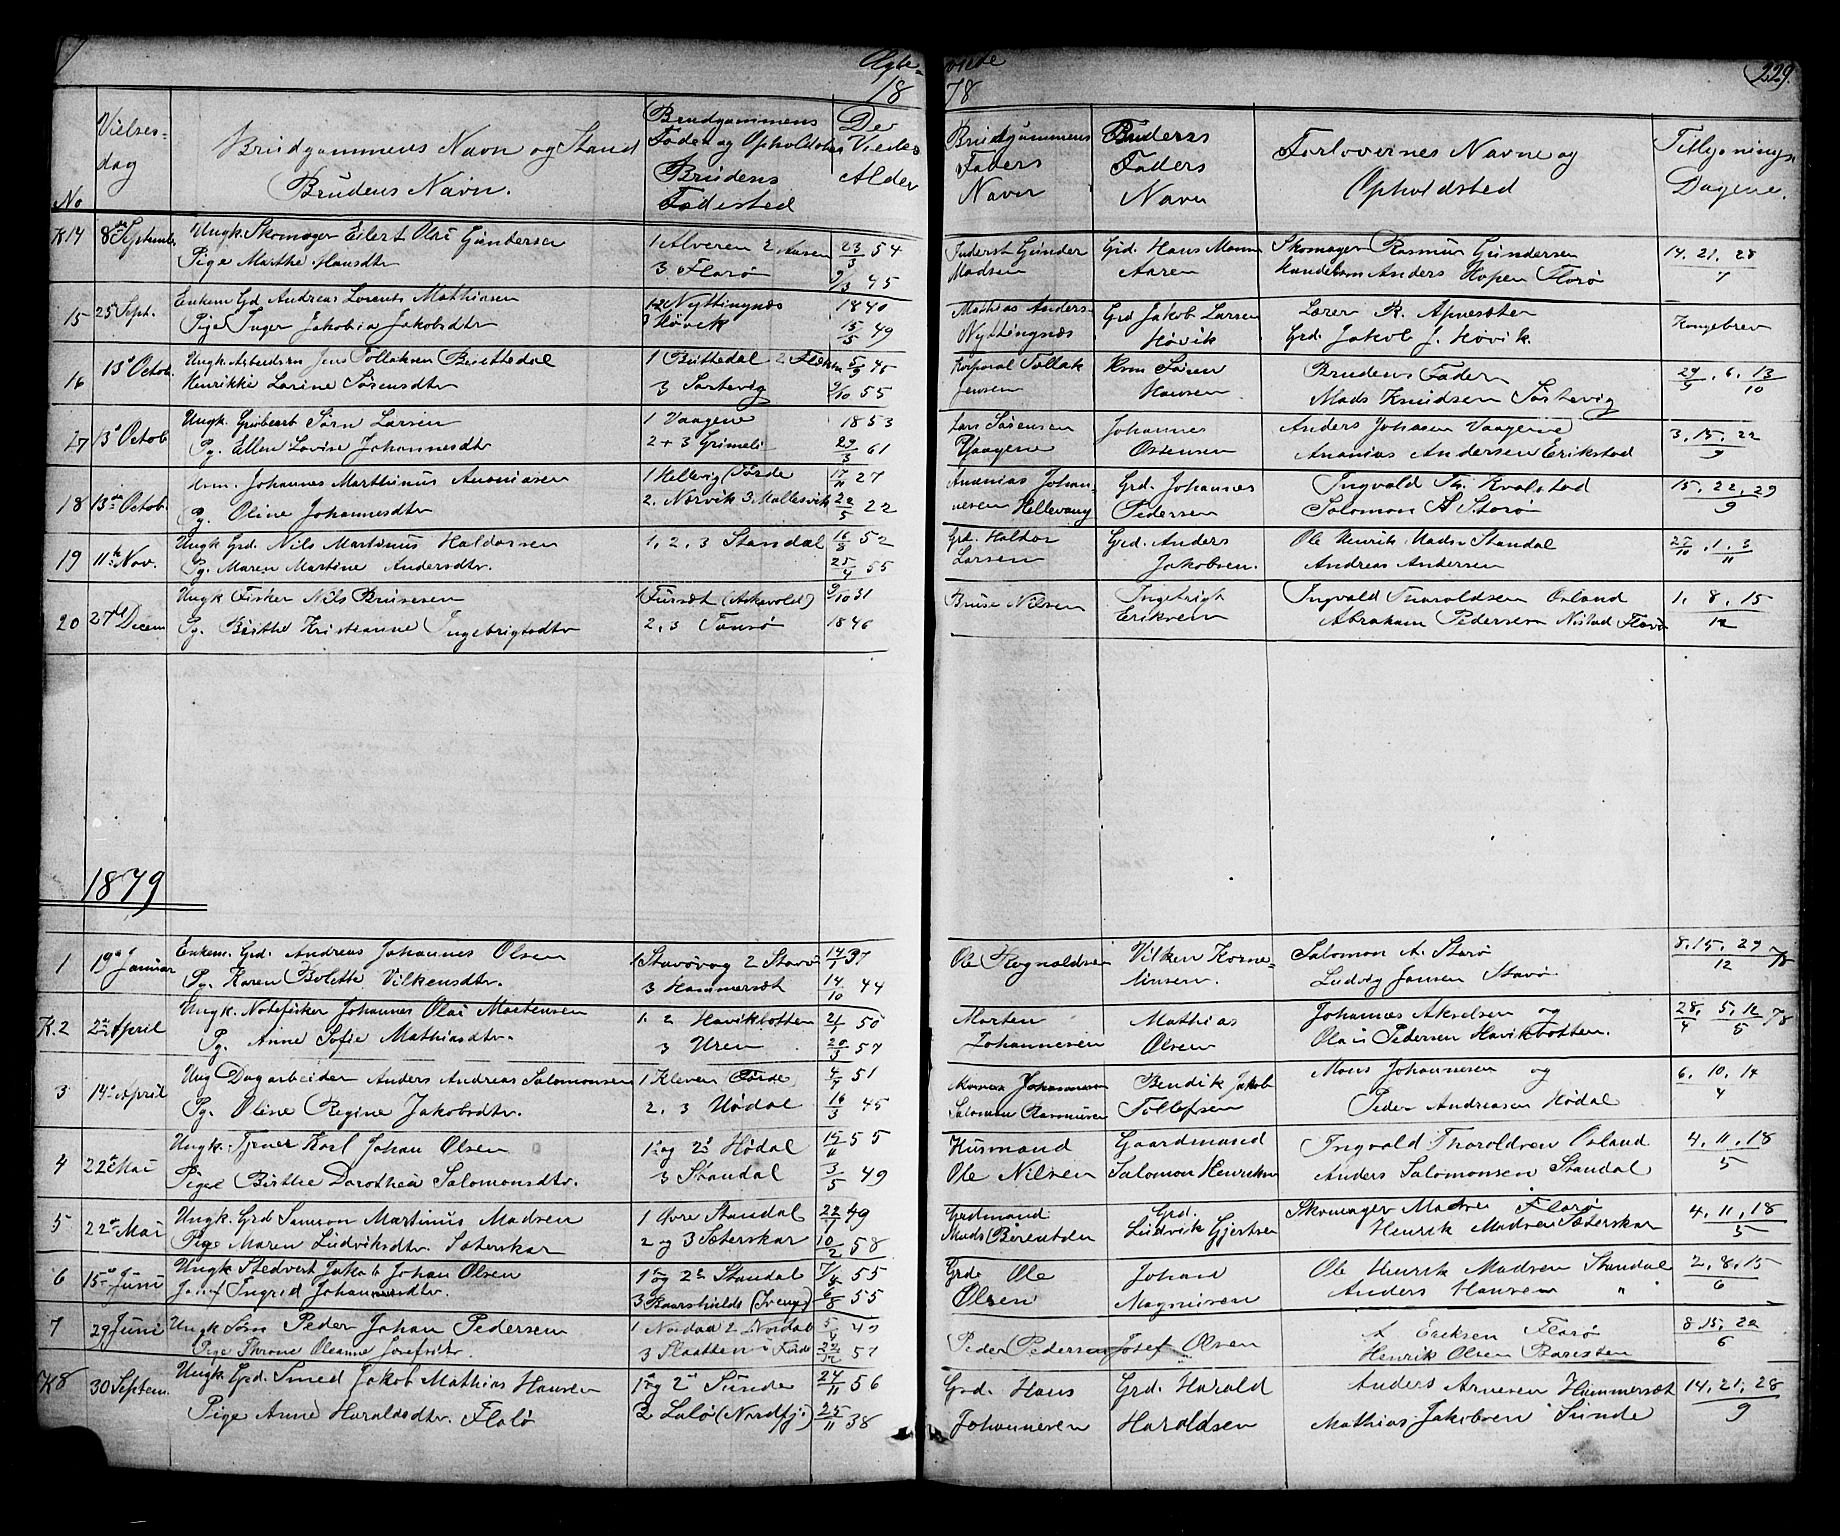 229.
18
78
No
Vielses-
dag
Brudgommens Navn og Stand
Brudens Navn.
Brudgommens
Føde og Opholdsted
Brudens
Fødested
De
Viedes
Alder
Brudgommens
Faders
Navn
Brudens
Faders
Navn
Forlovernes Navne og
Opholdsted
Tillysnings-
Dagene.
K 14 8de September Ungk. Skomager Eilert Olai Gundersen 1 Alveren 2 Aasen 23/3 54 Gunder Grd. Hans Monsen Skomager Rasmus Gundersen 14. 21. 28
Pige Marthe Hansdtr 3 Florø 9/3 45 Madsen Aaren Anders Hopen Florø 7
15 25 Sept. Enkem Gd Andreas Lorents Mathiasen 1-2 Nyttingnæs 1840 Mathias Anders. Grd Jakob Larsen Lærer R. Apnesæter Kongebrev
Pige Inger Jakobia Jakobsdtr 3 Høvik 15/5 49 Nyttingnæs Høvik Grd. Jakob J. Hovik
16 13d Octob. Ungk. Arbeidsm Jens Tollaksen Buttedal 1 Buttedal 2 5/9 45 Korporal Tollak Søren Brudens Fader 29/9. 6. 13/10
Henrikke Larine Sørensdtr 3 Sortevig 9/10 55 Jensen Hansen Mads Knudsen Sortevig
27 13d Octob Ungk. Søren Larsen 1 Vaagene 1853 Lars Sørensen Johannes Anders Johasen Vaagene 3. 15. 22
Pg. Ellen Lovise Johannesdtr 2+3 Grimeli 29/3 61 Vaagene Ostensen Ananias Andersen Erikstad 9
18 13de Octob. Johannes Marthinus Ananiasen 1 Hellevig (Førde 17/11 27 Ananias Johan- Grd. Johannes Ingvald Th. Kvalstad 15. 22. 29
Pg. Oline Johannesdtr 2. Nærvik 3. Mallesvik 22/5 22 nesen Hellevang Pedersen Salomon A Storø 9
19 11te Nov. Ungk Grd. Nils Martinus Haldorsen 1, 2, 3 Standal 16/3 52 Grd. Haldor Grd. Anders Ole Henrik Mads. Standal 27/10. 1. 3/11
Pg. Maren Martine Andersdtr. 25/4 55 Larsen Jakobsen. Andreas Andersen
20 27d Decem Ungk Fisker Nils Brusesen 1 Furset (Askevold) 9/10 31 Bruse Nilsen Ingebrigt Ingvald Tharaldsen Osland 1. 8. 15
Pg. Birthe Kristianne Ingebrigtsdtr 2, 3 Tansø 1846 Eriksen Abraham Pedersen Nistad Florø 12
1879
1 19de Januar Enkem. Grd. Andreas Johannes Olsen 1 Stavøvog 2 Stavø 14/1 37 Ole Rognaldsen Vilken Korne- Salomon A. Storø 8. 15. 29/12 78
Pg. Karen Bolette Vilkensdtr. 3 Hammersæt 14/10 44 liusen. Ludvig Jansen Stavø
K. 2 2den April Ungk. Notefisker Johannes Olai Mortensen 1. 2 Havikbotten 21/1 50 Morten Mathias Johannes Akselsen og 28/4. 5. 12/5 78
Pg. Anne Sofie Mathiasdtr. 3 Uren 20/3 57 Johannesen Olsen Olai Pedersen Havikbotten.
3 14de April Ung Dagarbeider Anders Andreas Salomonsen 1 Kleven (Førde) 4/7 51 Bendik Jakob Mons Johannesen og 6. 10. 14
Pg. Oline Regine Jakobsdtr. 2, 3 Hødal 16/3 45 Salomon Rasmusen Tollefsen Peder Andreasen Hødal 4
4 22de Mai Ungk. Tjener Karl Johan Olsen 1s og 2s Hødal 15/11 55 Husmand Gaardmand Ingvald Tharoldsen Osland 4. 11. 18
Pige Birthe Dorothea Salomonsdtr. 3 Standal 3/5 49 Ole Nilsen Salomon Henriksen Anders Salomonsen Standal 5
5 22de Mai Ungk. Grd Samson Martinus Madsen 1 Øvre Standal 22/1 49 Grdmand Grd. Skomager Madsen Florø 4. 11. 18
Pige Maren Ludviksdtr. Sæterskar 2 og 3 Sæterskar 10/2 58 Mads Berentsen Ludvik Gjertsen Henrik Madsen Sæterskar 5
6 15de Juni Ungk Stedvert Jakob Johan Olsen 1s og 2s Standal 7/4 55 Grde Ole Johan Ole Henrik Madsen Standal 2. 8. 15
Ingrid Johannesdtr. 3 Baarsholds 6/8 55 Olsen Magnusen Anders Hansen " 6
7 29 Juni Ungk Søn Peder Johan Pedersen 1 Nordal 2 Nordal 5/4 40 Peder Pedersen Josef Olsen A Eriksen Florø 8. 15. 22
Pige Throne Oleanne Josefsdtr. 3 Slaatten Førde 22/12 57 Henrik Olsen Baresten 6
K8 30 Septem. Ungk. Grd. Smed Jakob Mathias Hansen 1s og 2s Sunde 24/11 56 Grd. Hans Grd. Harald Anders Arnesen Hammersæt 14. 21. 28
Pige Anne Haraldsdtr. Florø 2 Lalø (Nordfj.) 25/11 38 Johannesen Haroldsen Mathias Jakobsen Sunde 9